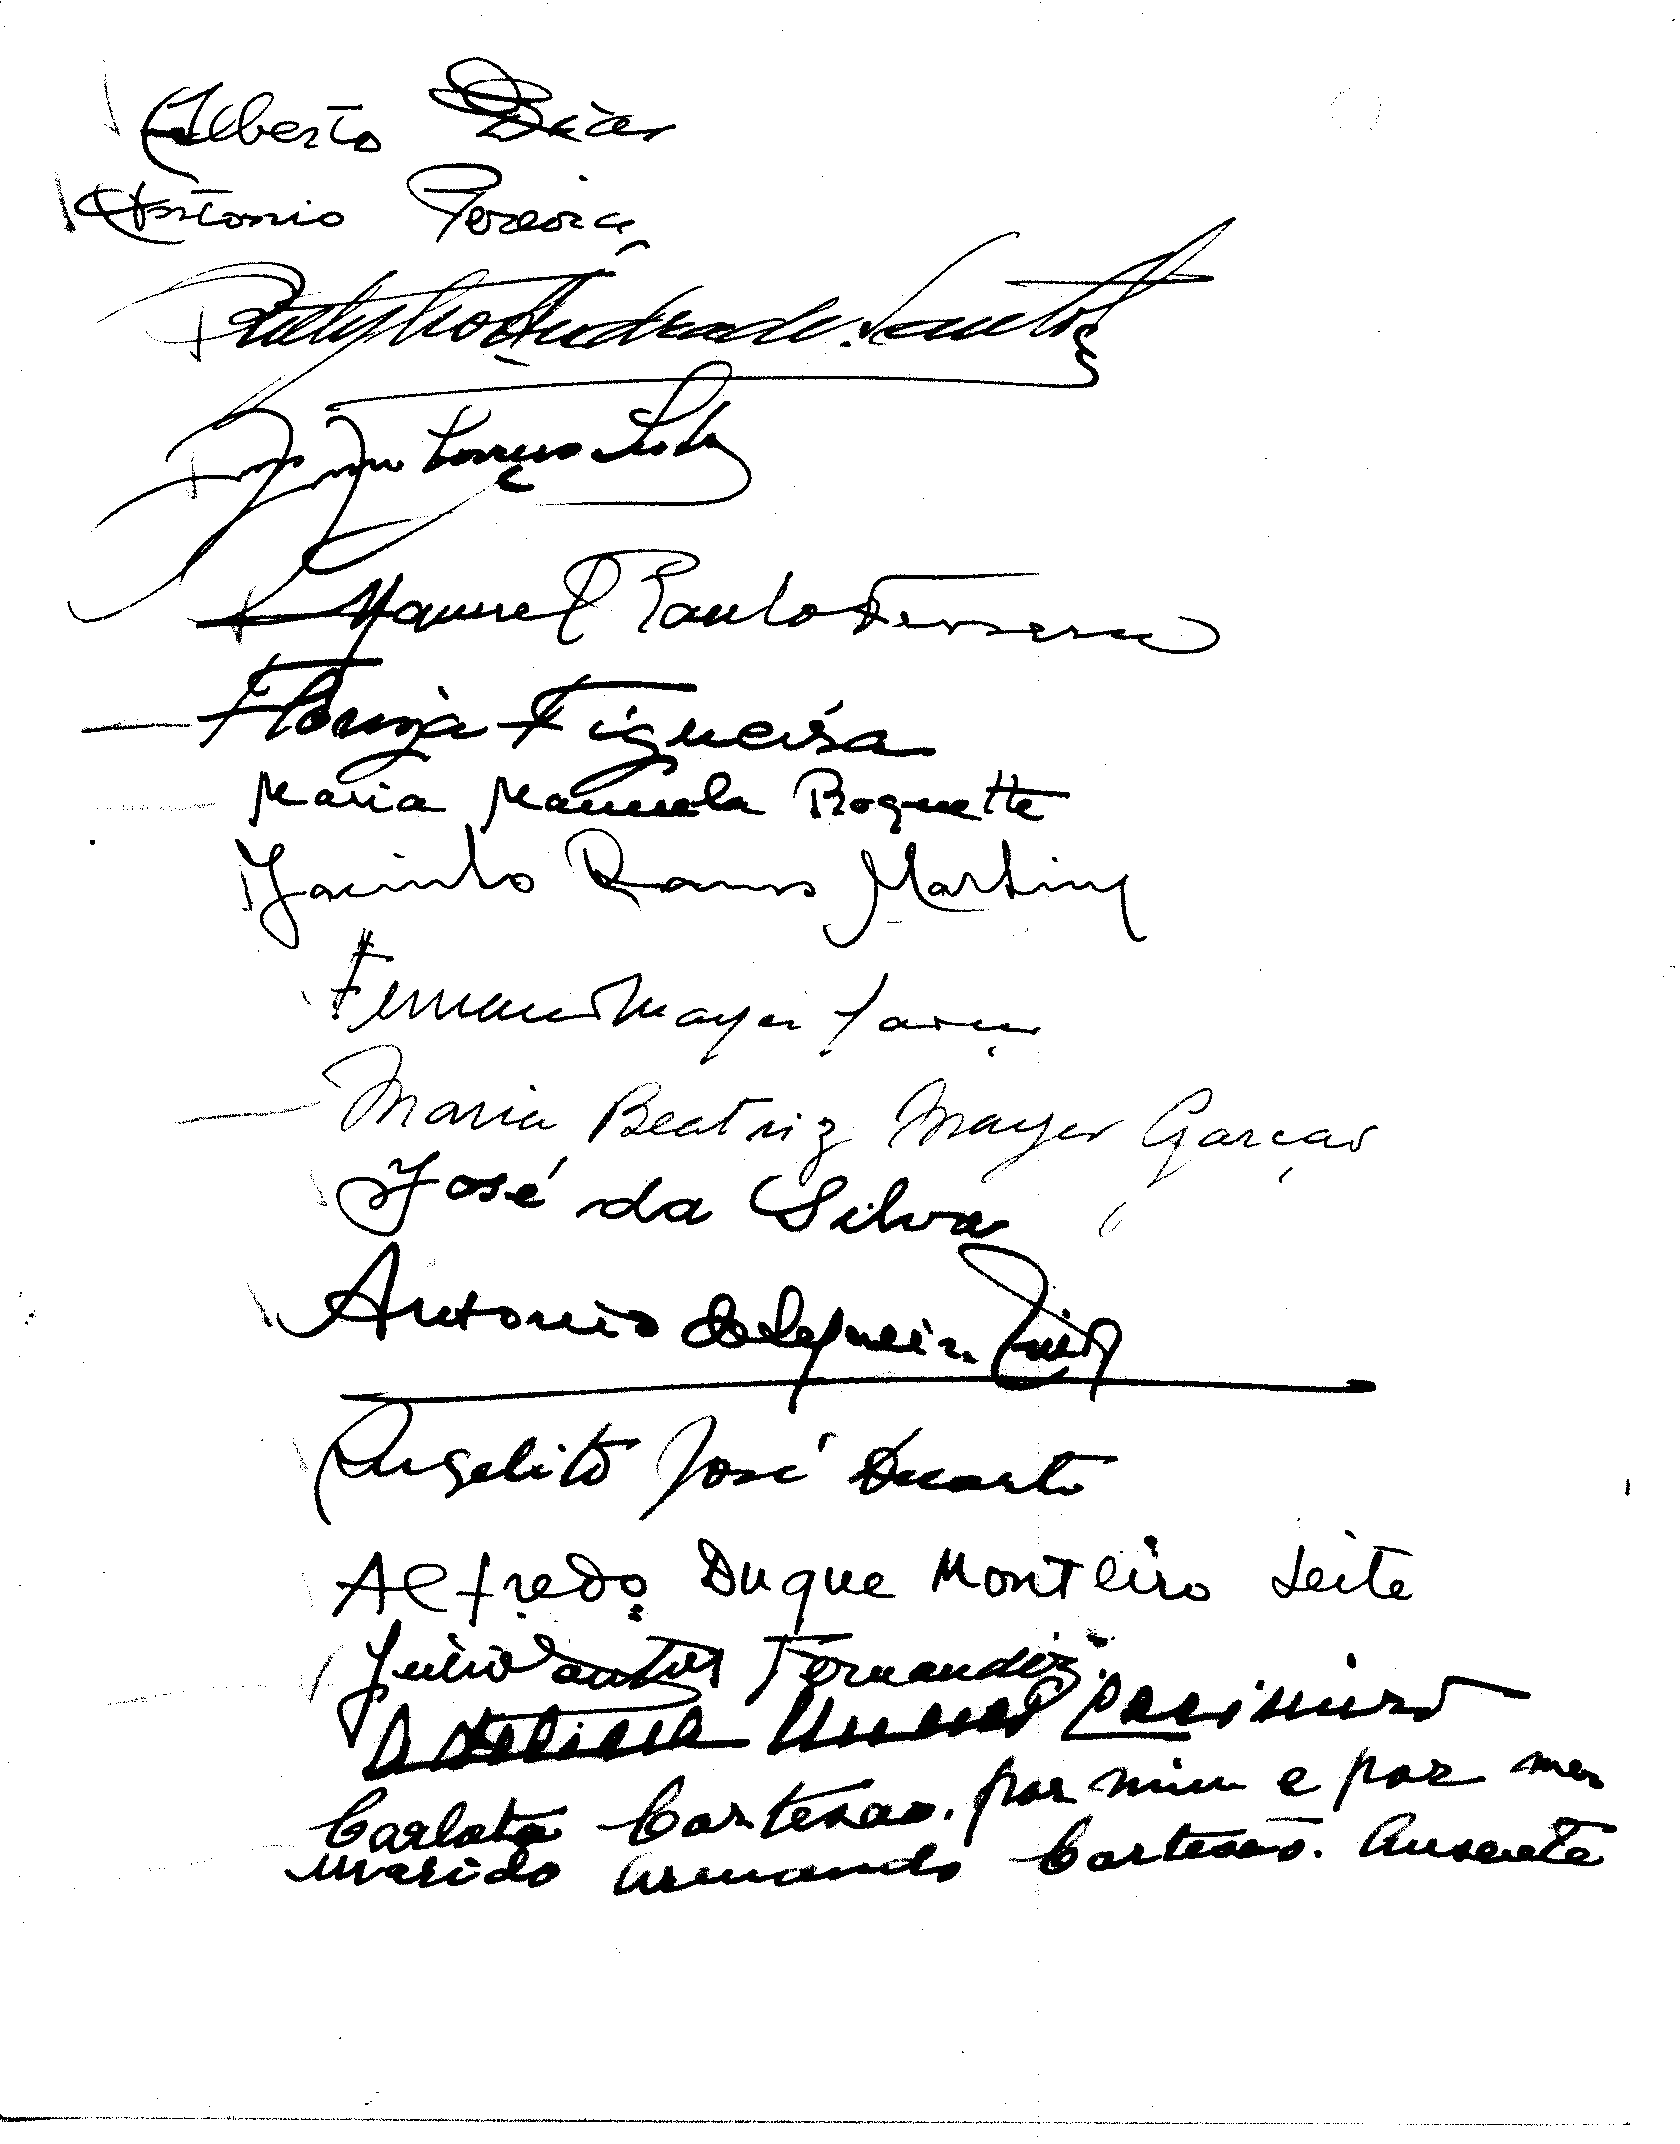 Alberto Dias
Antonio Pereira
Andrade Santos
Lourenço
Manuel Paulo Ferreira
Figueira
Maria Manuela Roquette
Jacinto Ramos Martins
Fernando Mayer Garção
Maria Beatriz Mayer Garção
José da Silva
Antonio de Sequeira
Angelito José Duarte
Alfredo Duque Monteiro Leite
Julio Santos Fernandes
Casimiro
Carlota Cortesão. por mim e por meu
marido Armando Cortesão. Ausente